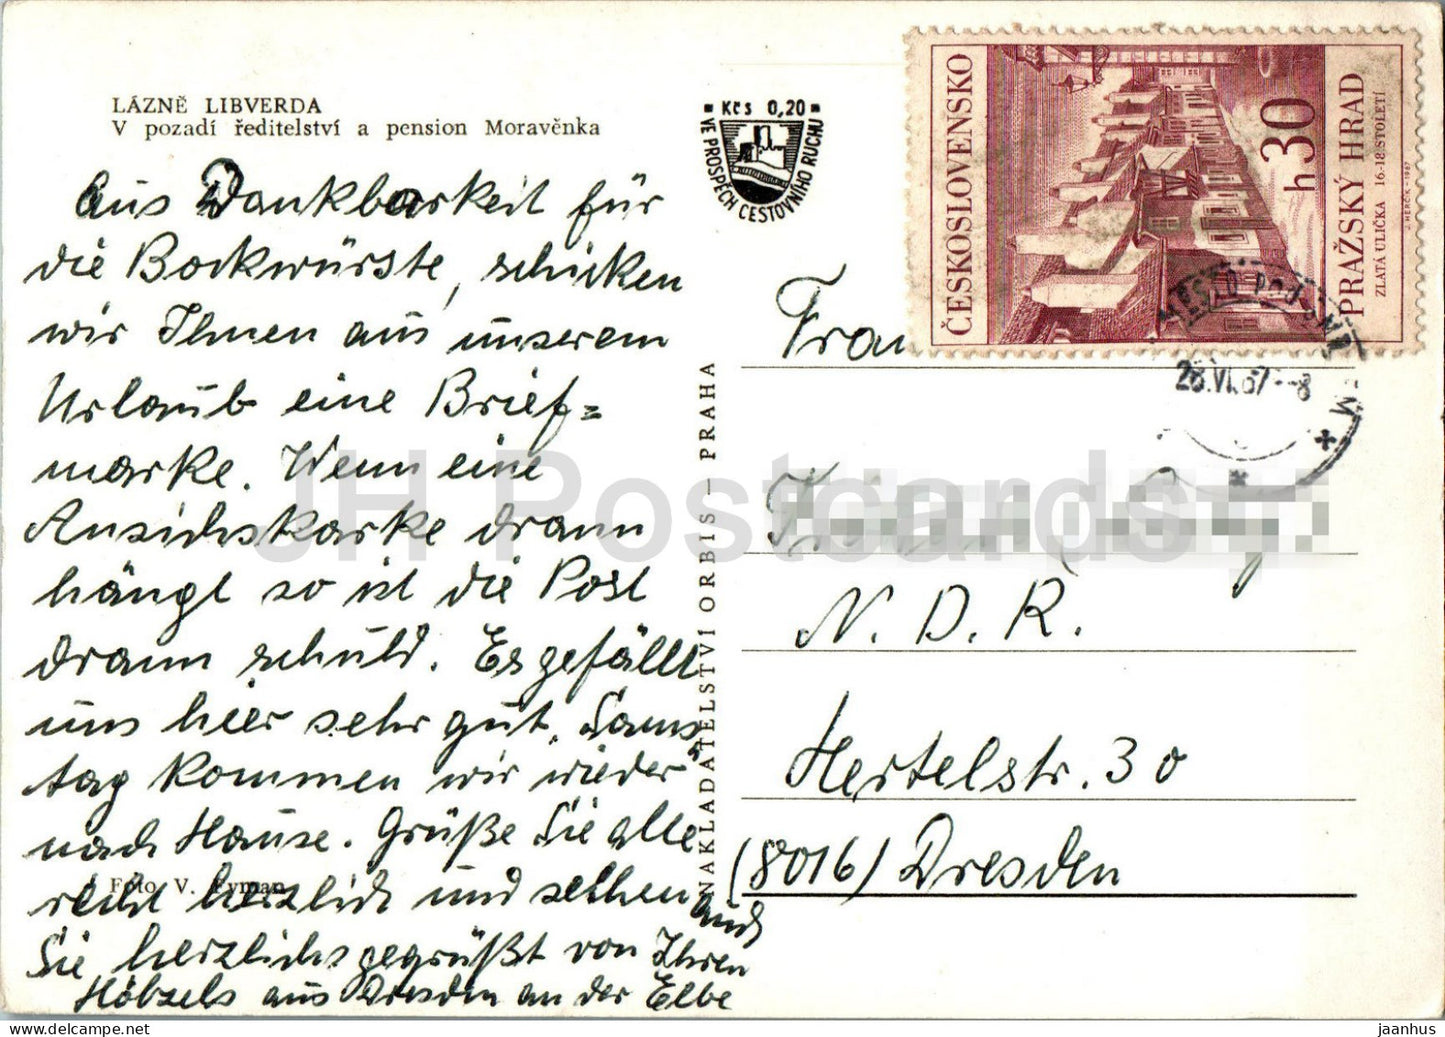 LÁZNĚ LIBVERDA
V pozadí ředitelství a pension Moravěnka
Aus Dankbarkeit für
die Bockwürste, schicken
wir Ihnen aus unserem
Urlaub eine Brief=
marke. Wenn eine
Ansichskarke drann
hängt so ist die Post
drann schuld. Es gefällt
uns hier sehr gut. Sams
tag kommen wir wieder
nach Hause. Grüße Sie alle
recht herzlich und sethen auch
Sie herzlichs gegrüßt von Ihren
Höbzels aus Dresden an der Elbe
Foto V. Fyman
■ Kčs 0,20 ■
VE PROSPĚCH CESTOVNÍHO RUCHU
NAKLADATELSTVÍ ORBIS — PRAHA
ČESKOSLOVENSKO
30 h
PRAŽSKÝ HRAD
ZLATÁ ULIČKA 16.-18. STOLETÍ
J. HERČÍK - 1967
MĚSTO POD SMRKEM
28.VI.67--8
Frau
N. D. R.
Hertelstr. 30
(8016) Dresden
JH Postcards
jaanhus